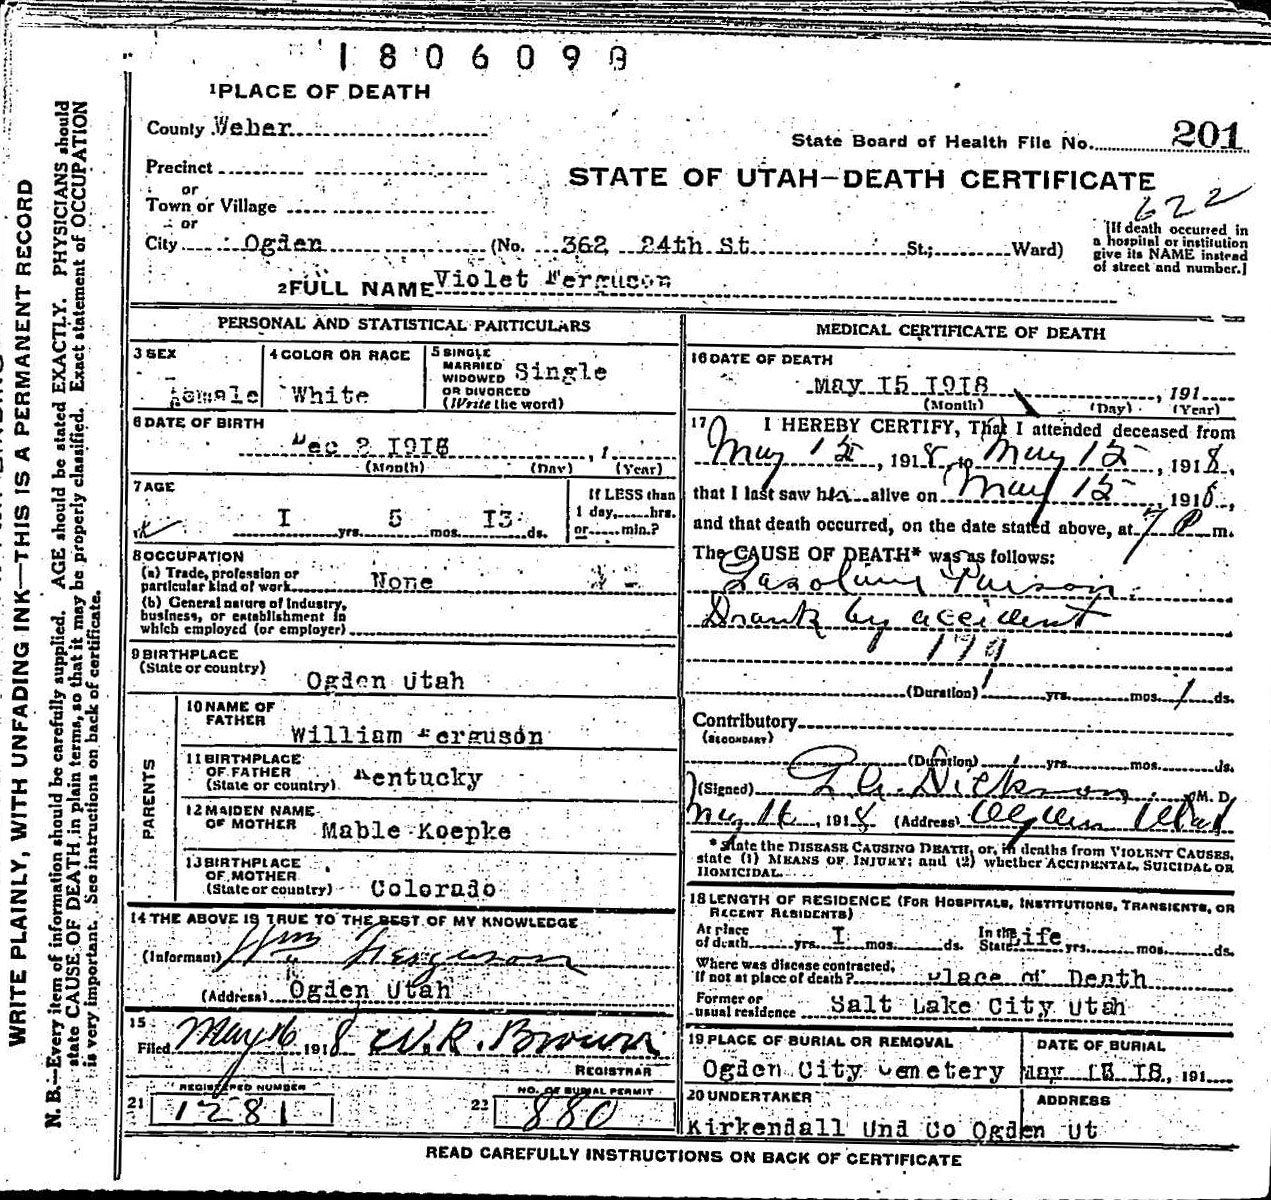 1806099
1 PLACE OF DEATH
County Weber
State Board of Health File No. 201
Precinct
or
STATE OF UTAH—DEATH CERTIFICATE
Town or Village
622
or
City Ogden (No. 362 24th St St.; Ward)
[If death occurred in
a hospital or institution
give its NAME instead
of street and number.]
2 FULL NAME Violet Ferguson
PERSONAL AND STATISTICAL PARTICULARS
3 SEX
Female
4 COLOR OR RACE
White
5 SINGLE
MARRIED
WIDOWED
OR DIVORCED
(Write the word)
Single
6 DATE OF BIRTH
Dec 2 , 1
(Month) (Day) (Year)
7 AGE
I yrs. 5 mos. I3 ds.
If LESS than
1 day, hrs.
or min.?
8 OCCUPATION
(a) Trade, profession or
particular kind of work None
(b) General nature of Industry,
business, or establishment in
which employed (or employer)
9 BIRTHPLACE
(State or country)
Ogden Utah
PARENTS
10 NAME OF
FATHER
William Ferguson
11 BIRTHPLACE
OF FATHER
(State or country) Kentucky
12 MAIDEN NAME
OF MOTHER Mable Koepke
13 BIRTHPLACE
OF MOTHER
(State or country) Colorado
14 THE ABOVE IS TRUE TO THE BEST OF MY KNOWLEDGE
(Informant) Wm Ferguson
(Address) Ogden Utah
15
Filed May 16 1918 W.R. Brown
REGISTRAR
REGISTERED NUMBER
21 1281
NO. OF BURIAL PERMIT
22 880
MEDICAL CERTIFICATE OF DEATH
16 DATE OF DEATH
May I5 I9I8 , 191
(Month) (Day) (Year)
17 I HEREBY CERTIFY, That I attended deceased from
May 15, 1918, to May 15, 1918,
that I last saw her alive on May 15, 1918,
and that death occurred, on the date stated above, at 7 P m.
The CAUSE OF DEATH* was as follows:
Gasoline Poison.
Drank by accident
179
(Duration) yrs. mos. 1 ds.
Contributory
(SECONDARY)
(Duration) yrs. mos. ds.
(Signed) Dickson M. D.
May 16, 1918 (Address) Ogden Utah
* State the DISEASE CAUSING DEATH, or, in deaths from VIOLENT CAUSES,
state (1) MEANS OF INJURY; and (2) whether ACCIDENTAL, SUICIDAL OR
HOMICIDAL.
18 LENGTH OF RESIDENCE (FOR HOSPITALS, INSTITUTIONS, TRANSIENTS, OR
RECENT RESIDENTS)
At place
of death yrs. I mos. ds. In the
State Life yrs. mos. ds.
Where was disease contracted,
if not at place of death? Place of Death
Former or
usual residence Salt Lake City Utah
19 PLACE OF BURIAL OR REMOVAL
Ogden City Cemetery
DATE OF BURIAL
May I8, 191
20 UNDERTAKER
ADDRESS
Kirkendall Und Co Ogden Ut
READ CAREFULLY INSTRUCTIONS ON BACK OF CERTIFICATE
WRITE PLAINLY, WITH UNFADING INK—THIS IS A PERMANENT RECORD
N. B.—Every item of information should be carefully supplied. AGE should be stated EXACTLY. PHYSICIANS should
state CAUSE OF DEATH in plain terms, so that it may be properly classified. Exact statement of OCCUPATION
is very important. See instructions on back of certificate.